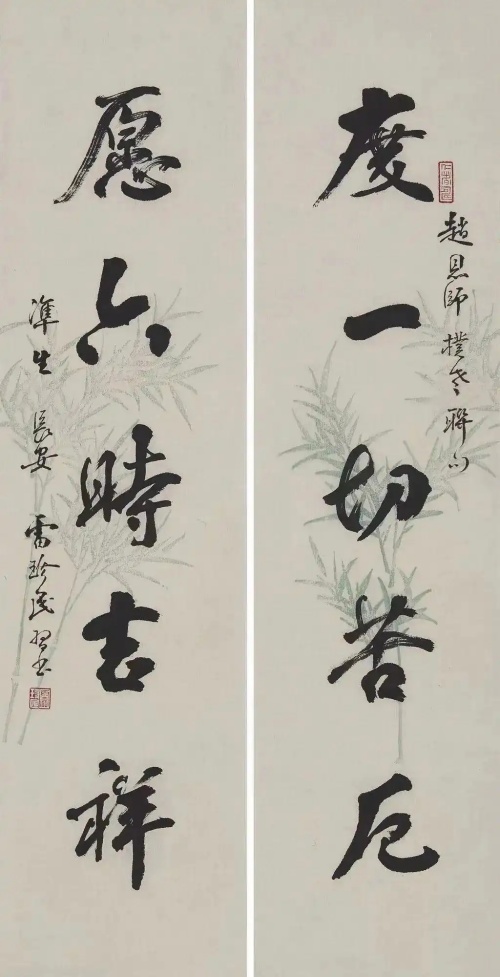 度一切苦厄
趙恩師樸老聯句
愿六時吉祥
準生 長安 雷珍民習書